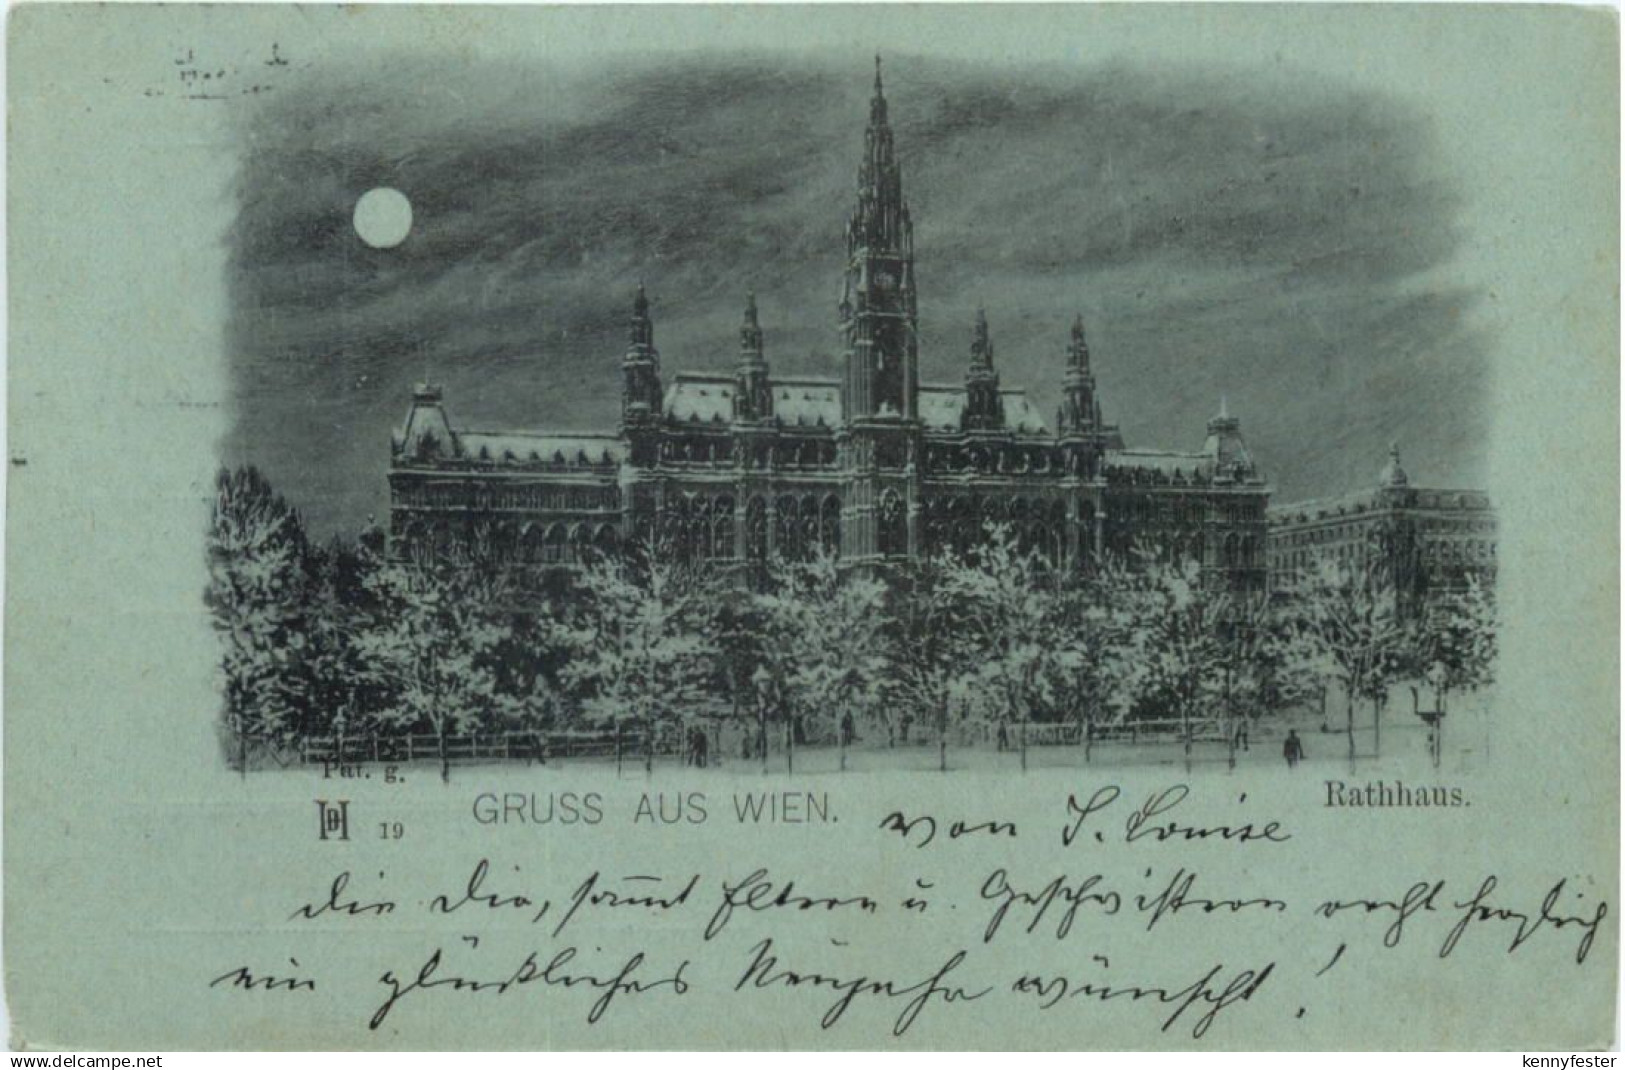 Pat. g.
HD 19 GRUSS AUS WIEN. Rathhaus.
von T. Louise
die Dir, sammt Eltern u. Geschwistern recht herzlich
ein glückliches Neujahr wünscht!
www.delcampe.net kennyfester